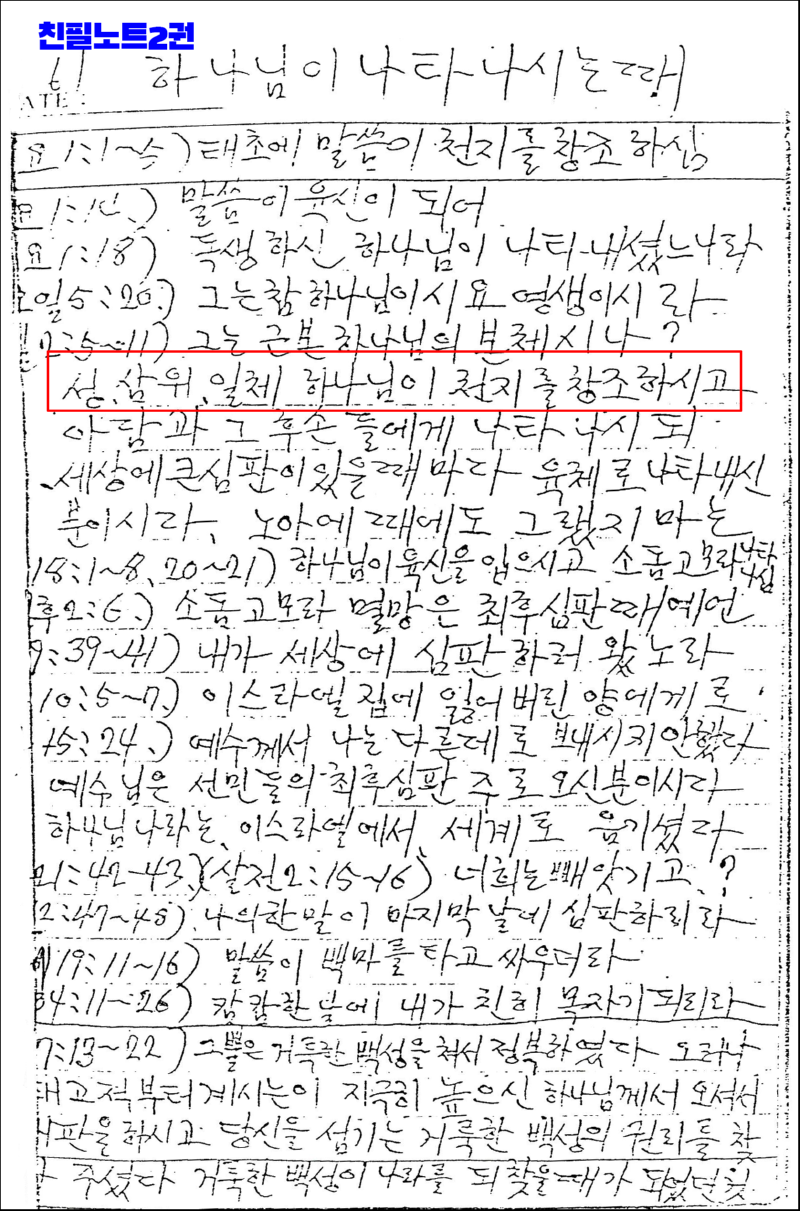 친필노트2권
61 하나님이 나타나시는 때
ATE :
요 1:1~5) 태초에 말씀이 천지를 창조하심
요 1:14.) 말씀이 육신이 되어
요 1:18) 독생하신 하나님이 나타내셨느니라
요일 5:20.) 그는 참 하나님이시요 영생이시라
2:5~11) 그는 근본 하나님의 본체시나 ?
성.삼위.일체 하나님이 천지를 창조하시고
아담과 그 후손들에게 나타나시되
세상에 큰심판이 있을때마다 육체로 나타내신
분이시라, 노아에 때에도 그랬지마는
18:1~8, 20~21) 하나님이 육신을 입으시고 소돔고모라 나타나심
후2:6.) 소돔고모라 멸망은 최후심판때 예언
9:39~41) 내가 세상에 심판하러 왔노라
10:5~7.) 이스라엘 집에 잃어버린 양에게로
15:24.) 예수께서 나는 다른데로 보내시지안했다
예수님은 선민들의 최후심판 주로 오신분이시다
하나님나라는, 이스라엘에서, 세계로 옮기셨다
21:42-43.)(살전2:15~16) 너희는 빼앗기고 ?
2:47~48) 나의한 말이 마지막 날에 심판하리라
계19:11~16) 말씀이 백마를 타고 싸우더라
34:11~26) 캄캄한 날에 내가 친히 목자가 되리라
7:13~22) 그뿔은 거룩한 백성을 쳐서 정복하였다 오래나
태고적부터 계시는이 지극히 높으신 하나님께서 오셔서
재판을 하시고 당신을 섬기는 거룩한 백성의 권리를 찾
아 주셨다 거룩한 백성이 나라를 되찾을때가 되었던것